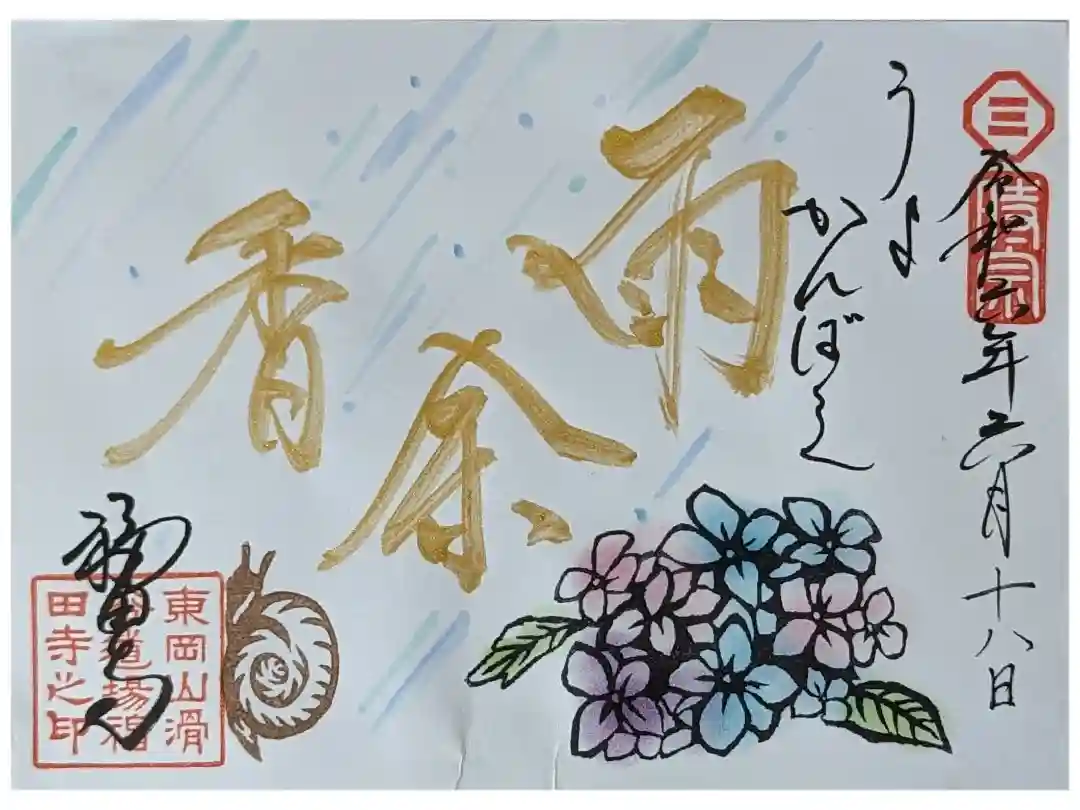 令和六年六月十八日
時宗
うよ
かんばしく
雨余香
福田寺
東岡山滑
道場福
田寺之印